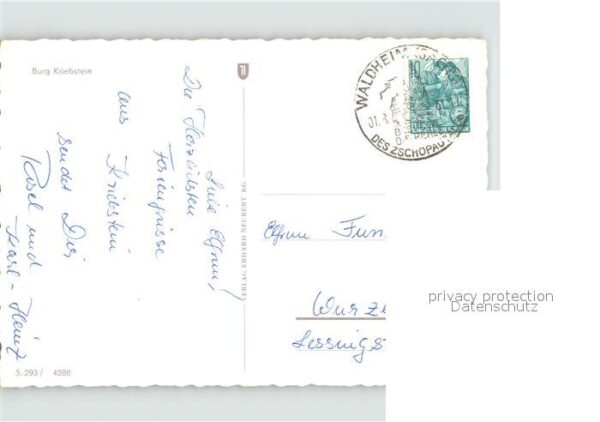 Burg Kriebstein
Liebe Elfrun!
Die Herzlichsten
Feriengrüsse
aus Kriebstein
sendet Dir
und
Karl-Heinz
5.293/ 4288
VERLAG ERHARD NEUBERT KG
WALDHEIM
DES ZSCHOPAU
Elfrun Fun
Wurze
Lessings
privacy protection
Datenschutz